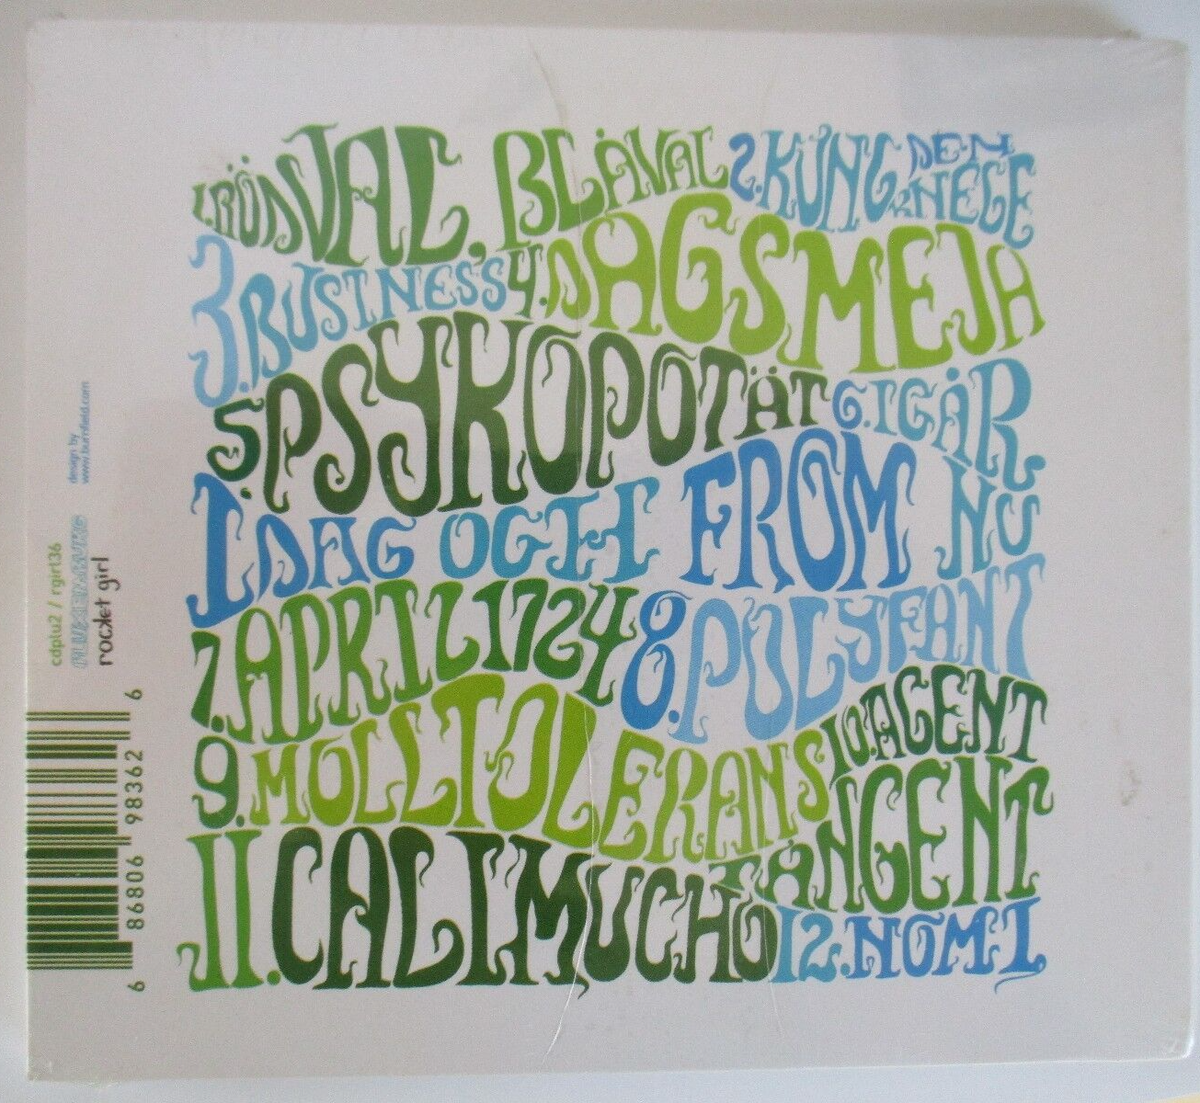 1.RÖDVAL, BLÅVAL 2.KUNG DEN 2:NEGE
3.BUSINESS 4.DAGSMEJA
5.PSYKOPOTÄT 6.IGÅR,
IDAG OCH FROM NU
7.APRIL 1724 8.POLYFANT
9.MOLLTOLERANS 10.AGENT TANGENT
11.CALIMUCHO 12.NOMI
design by
www.burnfield.com
cdplu2 / rgirl36
PLUXEMBURG
rocket girl
6 86806 98362 6